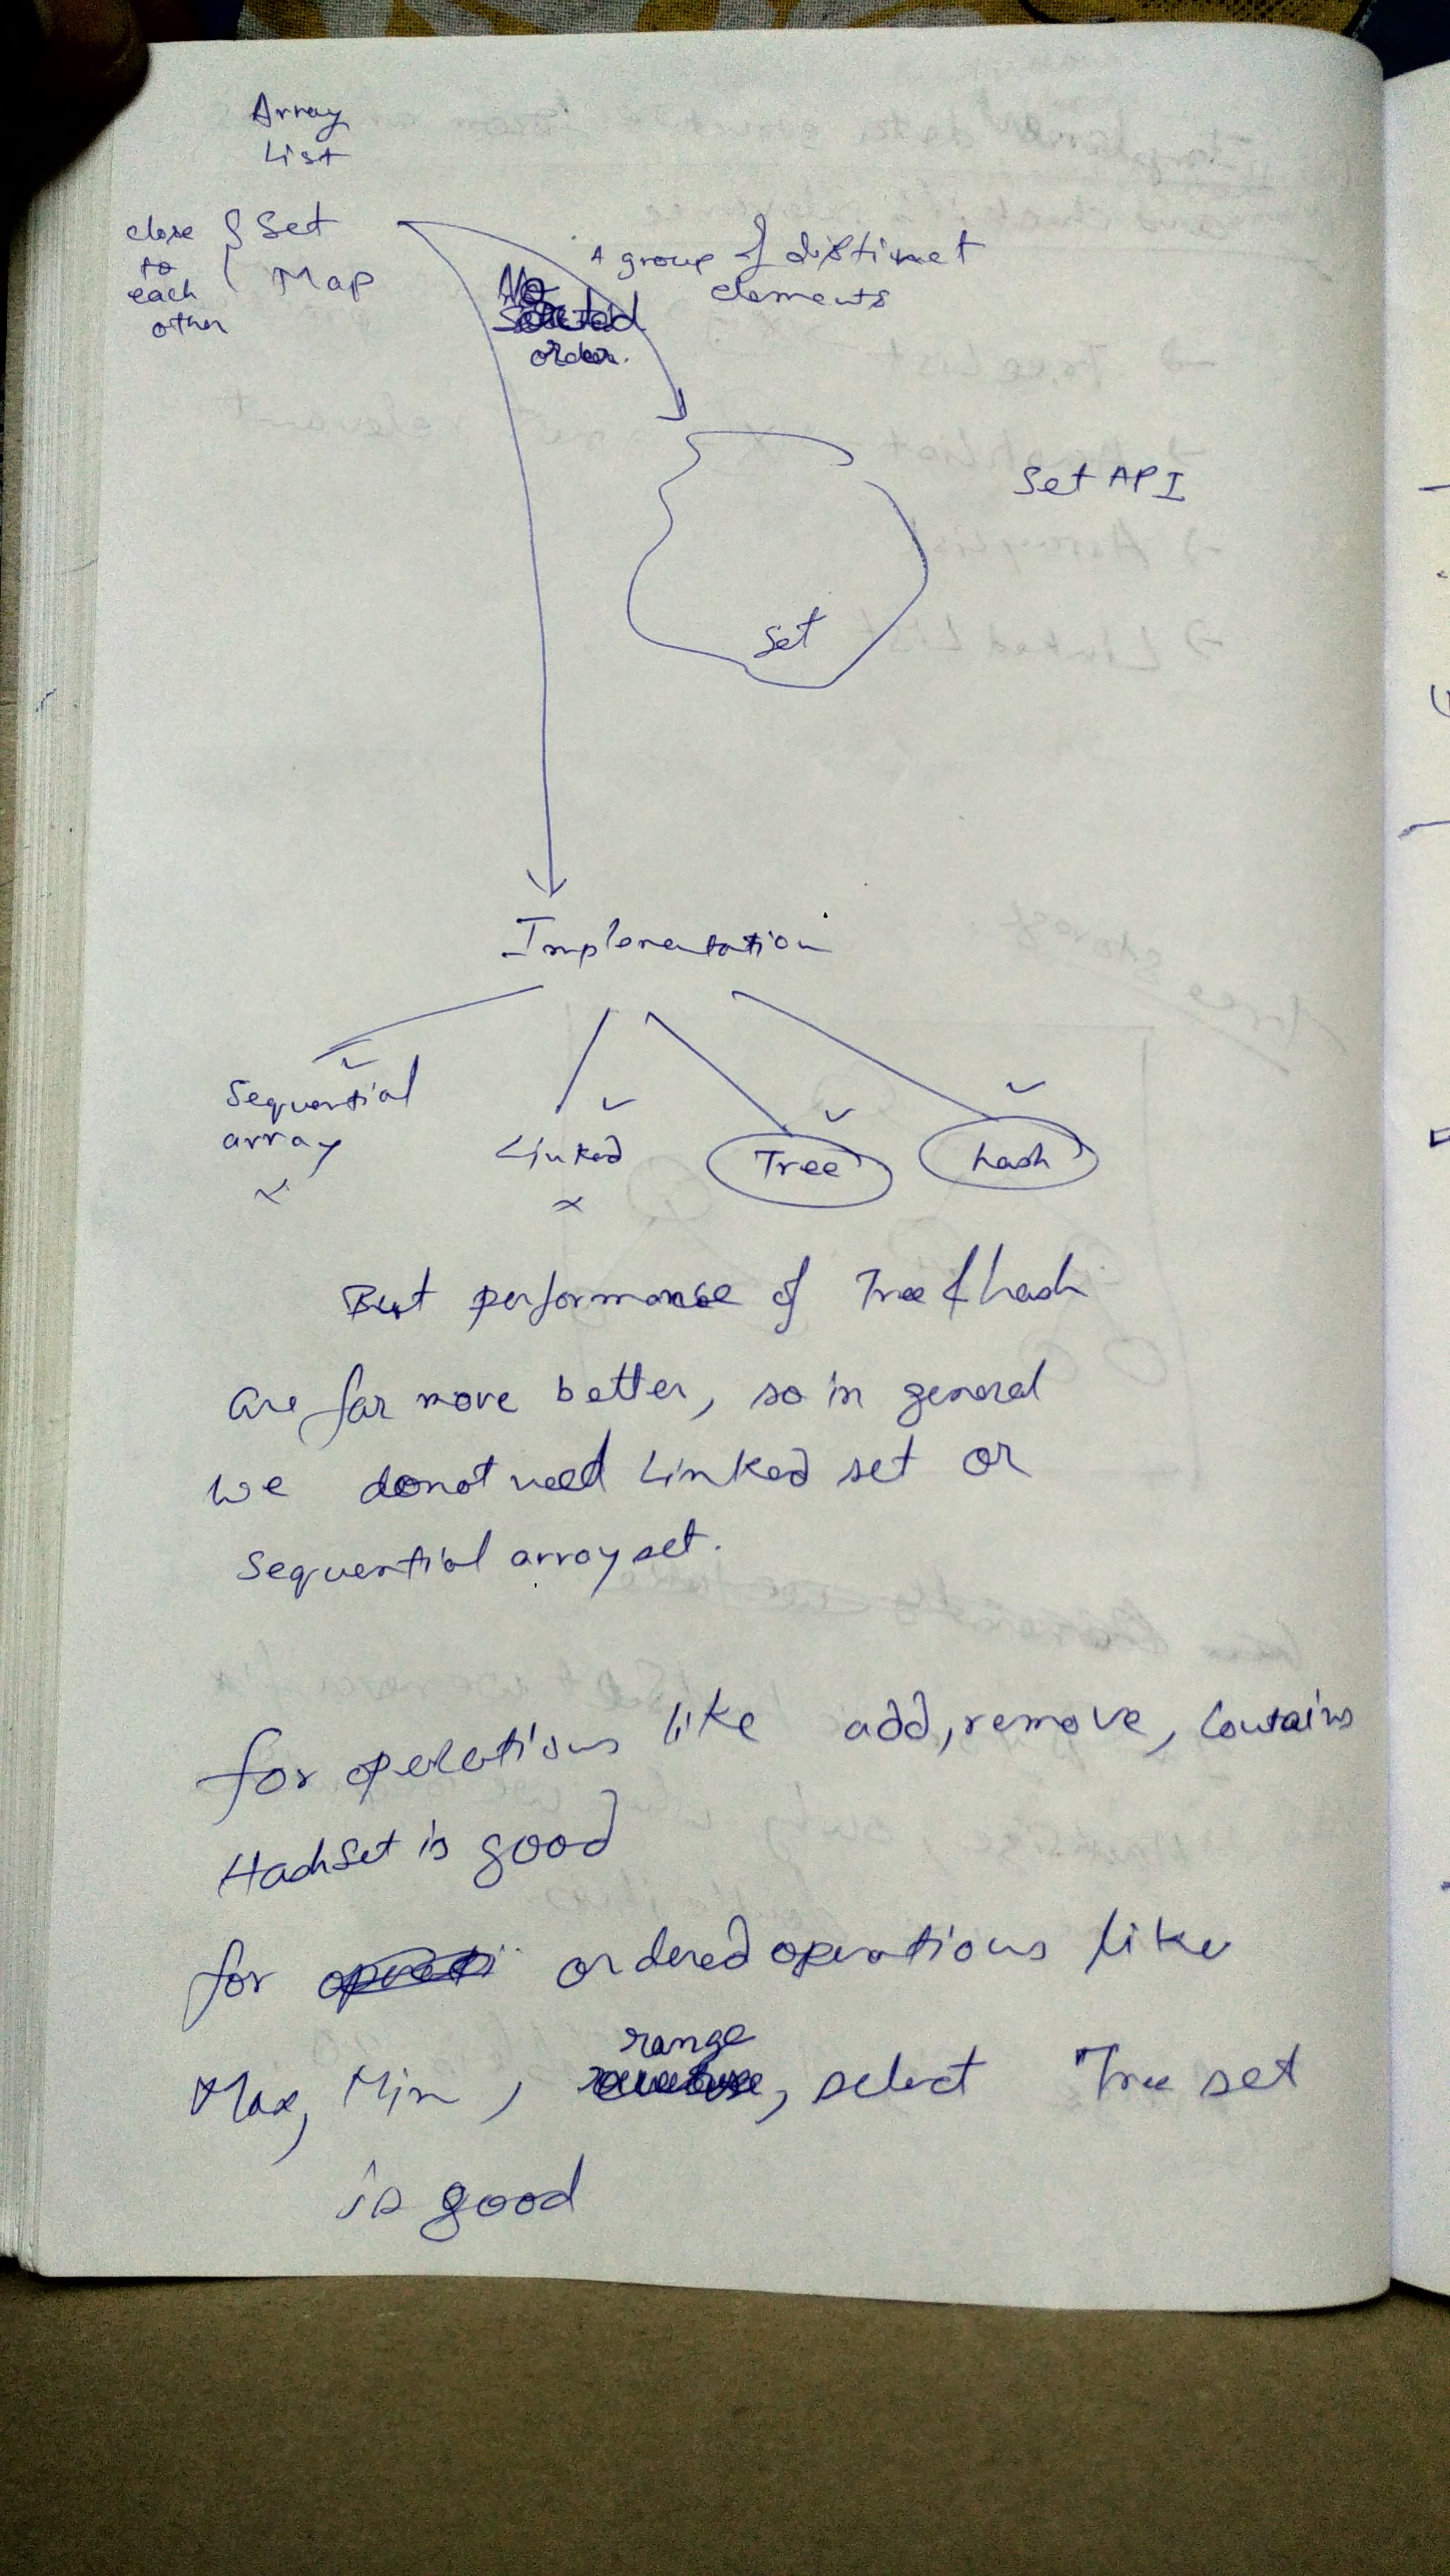 Array
List
close { Set
to
each
other
Map
A group of distinct
elements
No
order.
Set API
Set
Implementation
Sequential
array
Linked
Tree
hash
But performance of Tree & hash
are far more better, so in general
we donot need Linked set or
Sequential array set.
for operations like add, remove, contains
HashSet is good
for ordered operations like
range
Max, Min, , select Tree set
is good